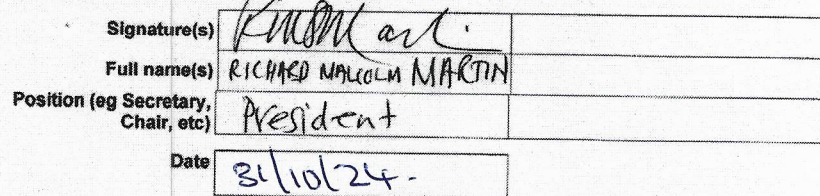 Signature(s)
Full name(s) RICHARD MALCOLM MARTIN
Position (eg Secretary,
Chair, etc) President
Date 31/10/24.